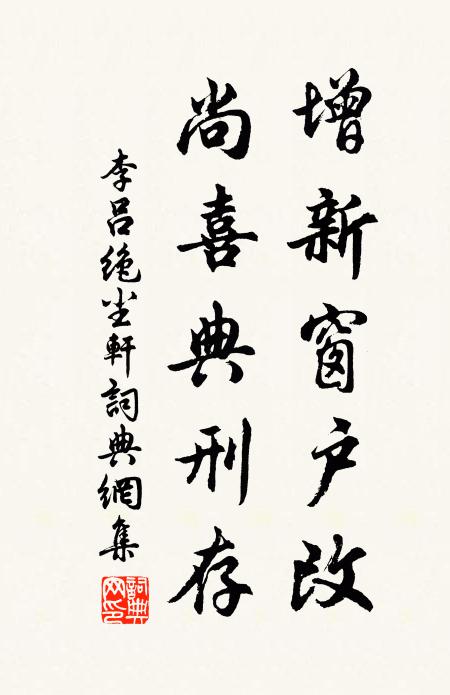 增新窗户改
尚喜典刑存
李吕絶尘軒詞典網集
詞典网印